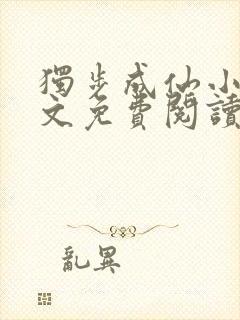 獨步成仙小
文免費閱讀
亂異